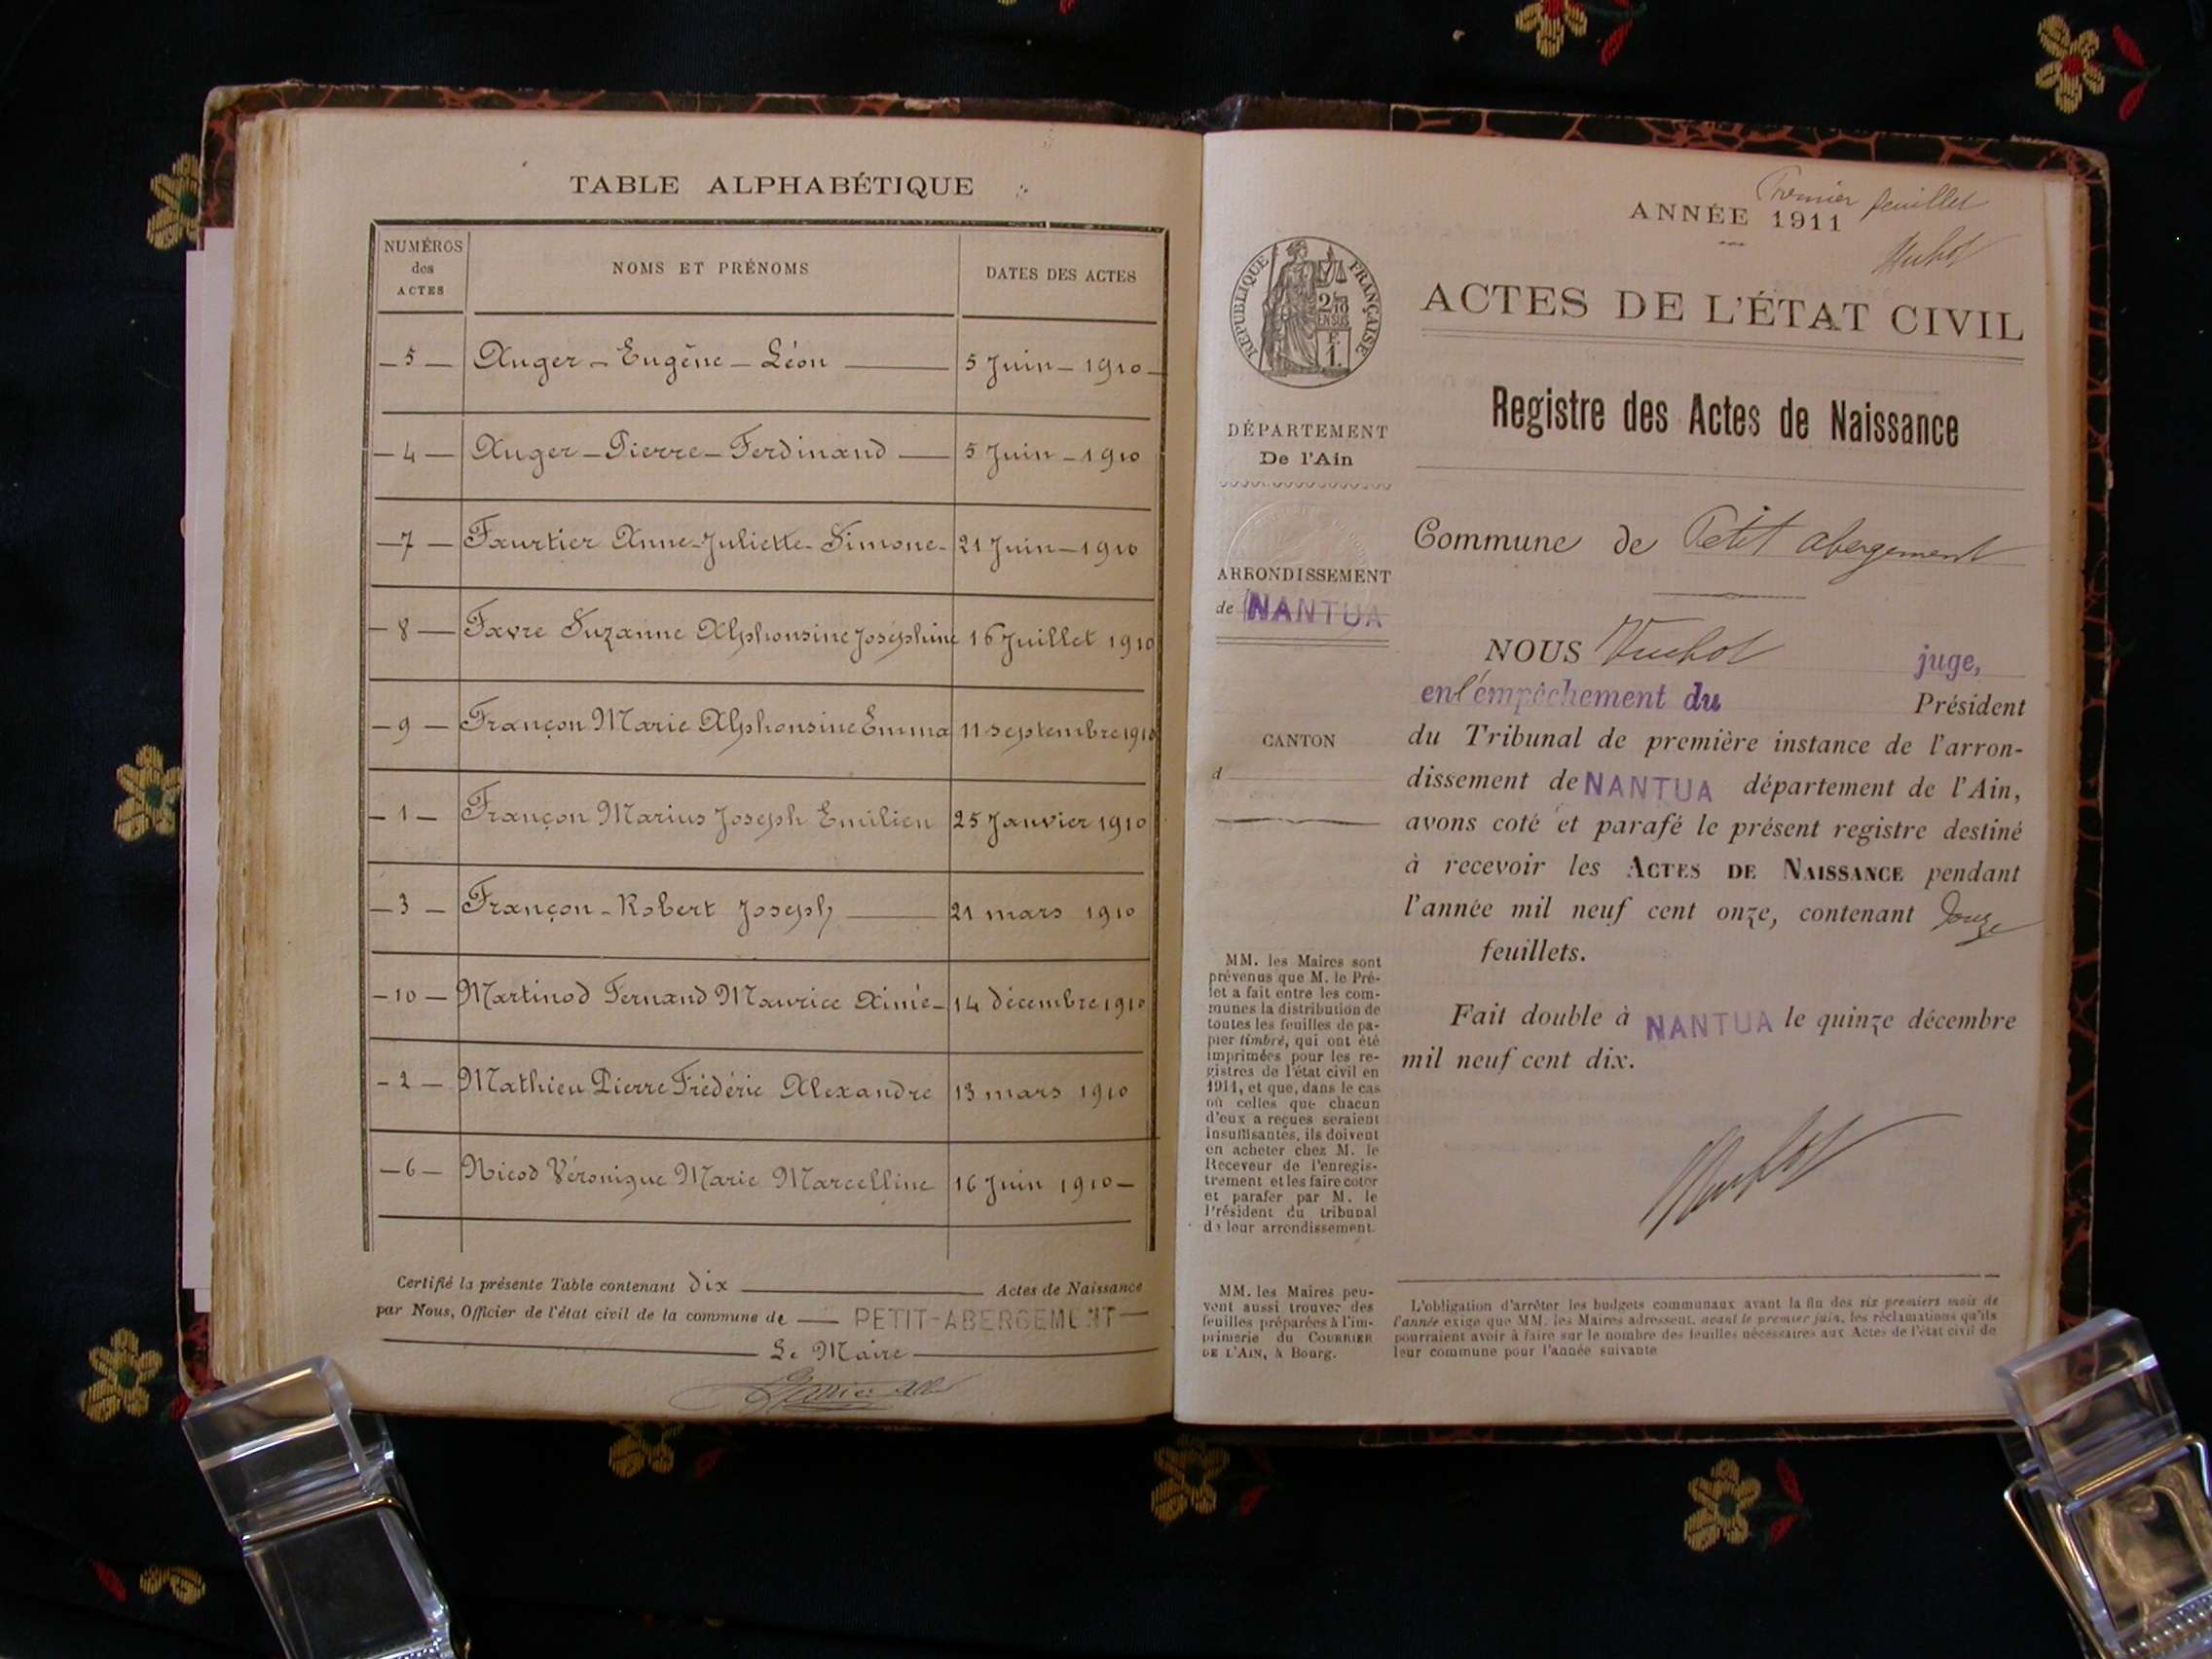 TABLE ALPHABÉTIQUE
NUMÉROS des ACTES
NOMS ET PRÉNOMS
DATES DES ACTES
— 5 — Auger – Eugène – Léon —— 5 Juin – 1910 –
— 4 — Auger – Pierre – Ferdinand —— 5 Juin – 1910
— 7 — Faurtier Anne-Juliette-Simone- 21 Juin – 1910
— 8 — Favre Suzanne Alphonsine Joséphine 16 Juillet 1910
— 9 — Françon Marie Alphonsine Emma 11 septembre 1910
— 1 — Françon Marius Joseph Emilien 25 Janvier 1910
— 3 — Françon – Robert Joseph —— 21 mars 1910
— 10 — Martinod Fernand Maurice Aimé – 14 décembre 1910
— 2 — Mathieu Pierre Frédéric Alexandre 13 mars 1910
— 6 — Nicod Véronique Marie Marcelline 16 Juin 1910 –
Certifié la présente Table contenant dix —— Actes de Naissance
par Nous, Officier de l'état civil de la commune de — PETIT-ABERGEMENT —
Le Maire
Premier feuillet
ANNÉE 1911
ACTES DE L'ÉTAT CIVIL
RÉPUBLIQUE FRANÇAISE
2/10
EN SUS
F.
1.
Registre des Actes de Naissance
DÉPARTEMENT
De l'Ain
Commune de Petit abergement
ARRONDISSEMENT
de NANTUA
NOUS juge,
en l'empêchement du Président
du Tribunal de première instance de l'arron-
dissement de NANTUA département de l'Ain,
avons coté et parafé le présent registre destiné
à recevoir les ACTES DE NAISSANCE pendant
l'année mil neuf cent onze, contenant douze
feuillets.
CANTON
d
Fait double à NANTUA le quinze décembre
mil neuf cent dix.
MM. les Maires sont
prévenus que M. le Pré-
fet a fait entre les com-
munes la distribution de
toutes les feuilles de pa-
pier timbré, qui ont été
imprimées pour les re-
gistres de l'état civil en
1911, et que, dans le cas
où celles que chacun
d'eux a reçues seraient
insuffisantes, ils doivent
en acheter chez M. le
Receveur de l'enregis-
trement et les faire coter
et parafer par M. le
Président du tribunal
de leur arrondissement.
MM. les Maires peu-
vent aussi trouver des
feuilles préparées à l'im-
primerie du COURRIER
DE L'AIN, à Bourg.
L'obligation d'arrêter les budgets communaux avant la fin des six premiers mois de
l'année exige que MM. les Maires adressent, avant le premier juin, les réclamations qu'ils
pourraient avoir à faire sur le nombre des feuilles nécessaires aux Actes de l'état civil de
leur commune pour l'année suivante